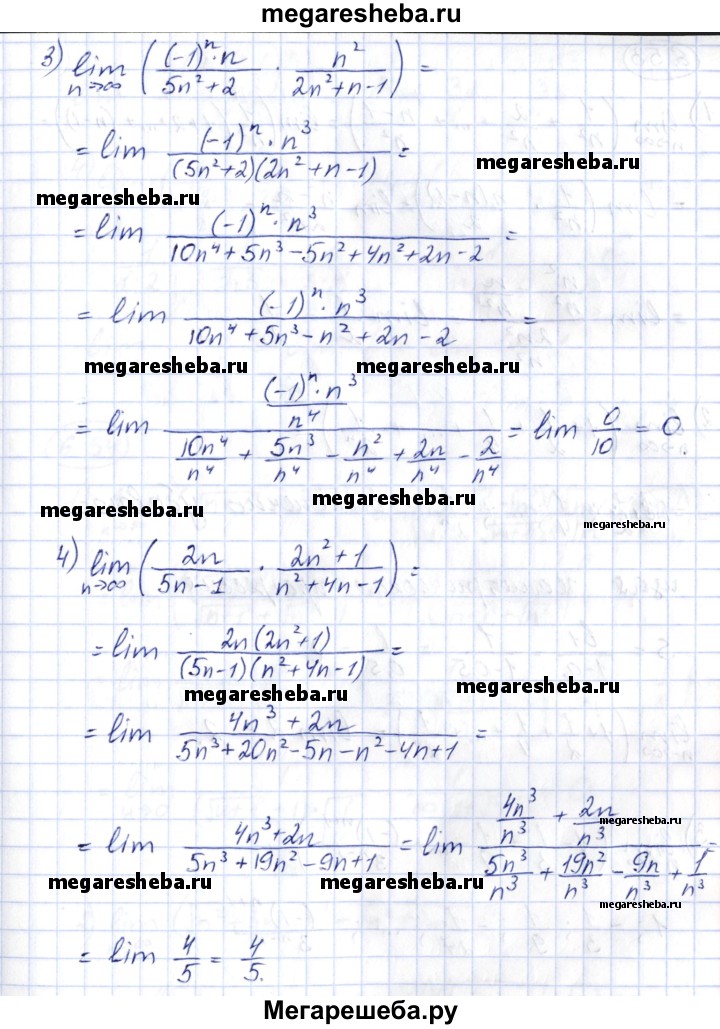 megaresheba.ru
3) lim n→∞ ( (-1)ⁿ·n / 5n²+2 · n² / 2n²+n-1 ) =
= lim (-1)ⁿ·n³ / (5n²+2)(2n²+n-1) =
megaresheba.ru
megaresheba.ru
= lim (-1)ⁿ·n³ / 10n⁴+5n³-5n²+4n²+2n-2 =
= lim (-1)ⁿ·n³ / 10n⁴+5n³-n²+2n-2 =
megaresheba.ru megaresheba.ru
= lim ((-1)ⁿ·n³ / n⁴) / (10n⁴/n⁴ + 5n³/n⁴ - n²/n⁴ + 2n/n⁴ - 2/n⁴) = lim 0/10 = 0.
megaresheba.ru
megaresheba.ru
megaresheba.ru
4) lim n→∞ ( 2n / 5n-1 · 2n²+1 / n²+4n-1 ) =
= lim 2n(2n²+1) / (5n-1)(n²+4n-1) =
megaresheba.ru
megaresheba.ru
= lim 4n³+2n / 5n³+20n²-5n-n²-4n+1 =
= lim 4n³+2n / 5n³+19n²-9n+1 = lim (4n³/n³ + 2n/n³) / (5n³/n³ + 19n²/n³ - 9n/n³ + 1/n³) =
megaresheba.ru
megaresheba.ru megaresheba.ru
megaresheba.ru
= lim 4/5 = 4/5.
Мегарешеба.ру